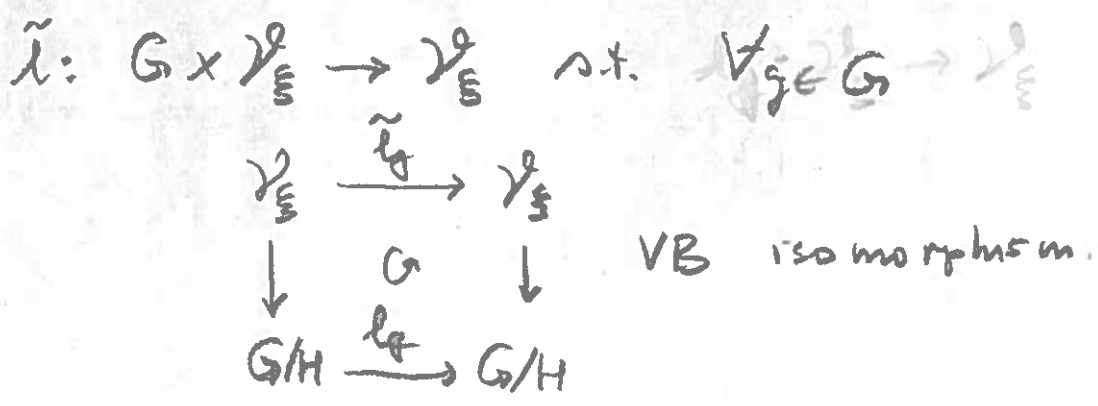 l̃: G × 𝒱_ξ → 𝒱_ξ s.t. ∀g∈G
𝒱_ξ →^{l̃_g} 𝒱_ξ
↓ ↺ ↓ VB isomorphism.
G/H →^{l_g} G/H